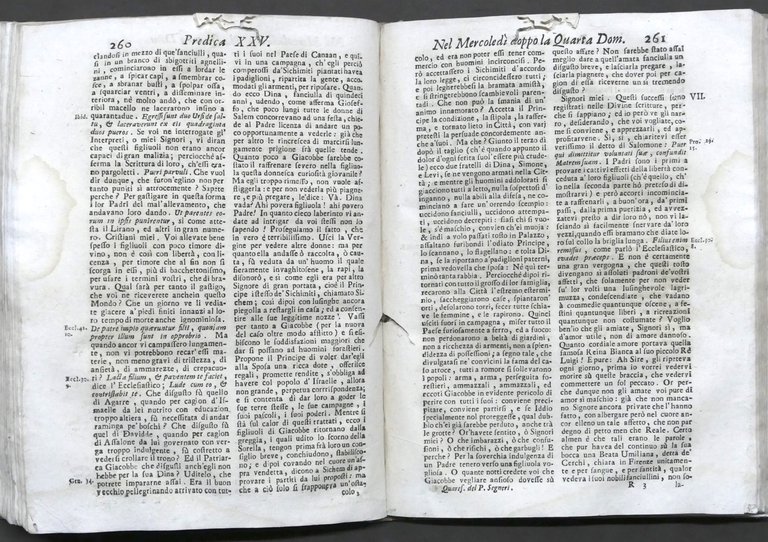 260 Predica XXV.
closi in mezzo di que' fanciulli, qua-
si in un branco di sbigottiti agnelli-
ni, cominciarono in essi a lordar le
zanne, a spiccar capi, a smembrar co-
sce, a sbranar busti, a spolpar ossa,
a squarciar ventri, a disseminare in-
teriora, nè molto andò, che con or-
ribil macello ne lacerarono insino a
Ibid. quarantadue. Egressi sunt duo Ursi de sal-
tu, & laceraverunt ex eis quadraginta
duos pueros. Se voi ne interrogate gl'
Interpreti, o miei Signori, vi diran
che questi figliuoli non erano ancor
capaci di gran malizia; perciocchè af-
ferma la Scrittura di loro, ch'essi era-
no pargoletti. Pueri parvuli. Che vuol
dir dunque, che furon'eglino non per
tanto puniti sì atrocemente? Sapete
perchè? Per gastigare in questa forma
i lor Padri del mal'allevamento, che
andavano loro dando. Ut parentes eo-
rum in ipsis punirentur, sì come atte-
sta il Lirano, ed altri in gran nume-
ro. Cristiani miei. Voi allevare bene
spesso i figliuoli con poco timore di-
vino, non è così con libertà, con li-
cenza, per timore che al fin non si
scorga in essi, più di bacchettonismo,
per usare i termini vostri, che di bra-
vura. Qual sarà per tanto il gastigo,
che voi ne riceverete anchein questo
Mondo? Che un giorno ve li vedia-
te giacere a' piedi finiti innanzi al lo-
ro tempo di morte anche ignominiosa.
Eccl. 41. De patre impio queruntur filii, quoniam
10. propter illum sunt in opprobrio. Ma
quando ancor vi campassero lungamen-
te, non vi potrebbono recar'essi ma-
terie, non meno gravi di tristezza, di
ansietà, di amarezze, di crepacuo-
Eccl. 30. ri? Lacta filium, & paventem te faciet,
9. dice l'Ecclesiastico; Lude cum eo, &
contristabit te. Che disgusto fu quello
di Agarre, quando per cagion d'Is-
maelle da lei nutrito con educazion
troppo altiera, fu necessitata di andar
raminga pe' boschi? Che disgusto fu
quel di Davidde, quando per cagion
di Assalone da lui governato con ver-
ga troppo indulgente, fu costretto a
vedersi crollare il trono? Ed il Patriar-
ca Giacobbe che disgusti anch'egli non
hebbe per la sua Dina? Uditelo, che
Gen. 34. potrete impararne assai. Era il buon
vecchio pellegrinando arrivato con tut-
ti i suoi nel Paese di Canaan, e qui-
vi in una campagna, ch'egli perciò
comperossi da' Sichimiti piantati havea
i padiglioni, ripartita la gente, acco-
modati gli armenti, per riposare. Quan-
do ecco Dina, fanciulla di quindeci
anni, udendo, come afferma Giosef-
fo, che poco lungi tutte le donne di
Salem concorrevano ad una festa, chie-
de al Padre licenza di andare un po-
co opportunamente a vederle: giacchè
per altro le rincresceva di marcirsi lun-
gamente prigione sotto quelle tende.
Quanto poco a Giacobbe sarebbe co-
stato il raffrenare severo nella figliuo-
la questa donnesca curiosità giovanile?
Ma egli troppo tenero, non vuole af-
fliggerla: e per non vederla più piagne-
re, e più pregare, le dice: Và. Dina
vada? Ahi povera figliuola! ahi povero
Padre! In quanto cieco laberinto vi an-
date ad intrigar da voi stessi non lo
sapendo! Proseguiamo il fatto, che
in vero è terribilissimo. Uscì la Ver-
gine per vedere altre donne: ma per
quanto ella andasse ò raccolta, ò cau-
ta, fù veduta da un'huomo il quale
fieramente invaghitosene, la rapì, la
disonorò, e sì come egli era per altro
Signore di gran portata, cioè il Prin-
cipe istesso de' Sichimiti, chiamato Si-
chem; così dipoi con lusinghe ancora
piegolla a restargli in casa, ed a consen-
tire alle sue legittime nozze. Vassi
per tanto a Giacobbe (per la nuova
del caso oltre modo afflitto) e fassi-
biscono le soddisfazioni maggiori che
dar si possano ad huomini forastieri.
Propone il Principe di voler dar'egli
alla Sposa una ricca dote, offerisce
regali, promette rendite, s'obbliga ad
havere col popolo d'Israelle, allora
non grande, perpetua corrispondenza;
e si contenta di dar loro a goder le
sue terre stesse, le sue campagne, i
suoi pascoli, i suoi poderi. Mentre si
stà sul calor di questi trattati, ecco i
figliuoli di Giacobbe ritornano dalla
greggia, i quali udito lo scorno della
Sorella, tengon prima frà loro un con-
siglio breve, conchiudono, stabilisco-
no; e dipoi covando nel cuore un'as-
pra vendetta, dicono a Sichem di ap-
provare i partiti da lui proposti: ma
che a ciò solo si frapponeva un'osta-
colo,
Nel Mercoledì doppo la Quarta Dom. 261
colo, ed era non poter essi tener com-
mercio con huomini incirconcisi. Per-
rò accettassero i Sichimiti d'accordo
la loro legge, si circoncidessero tutti;
e poi legherebbesi la bramata amistà,
e si stringerebbono scambievoli paren-
tadi. Che non può la smania di un'
animo innamorato? Accetta il Prin-
cipe la condizione, la stipola, la raffer-
ma, e tornato lieto in Città, con varj
pretesti la persuade concordemente an-
che a' suoi. Ma che? Giunto il terzo dì
dopo il taglio (ch'è quando appunto il
dolor d'ogni ferita suol essere più crude-
le) ecco due fratelli di Dina, Simone,
e Levi, se ne vengono armati nella Cit-
tà; e mentre gli huomini addolorati si
giacciono tutti a letto, nulla sospettosi d'
inganno, nulla abili alla difesa, ne co-
minciano a fare un'orrendo scempio:
uccidono fanciulli, uccidono attempa-
ti, uccidono decrepiti: siasi chi si vuo-
le, s'è maschio, convien ch'ei muoja:
& indi a volo passati tosto in Palazzo,
assaltano furibondi l'odiato Principe,
lo scannano, lo sfragellano; e tolta Di-
na, se la riportano a' padiglioni paterni,
prima vedovella che sposa: Nè quì ter-
minò tanta rabbia. Perciocchè dipoi ri-
tornati con tutto il grosso de' lor famigliari,
recarono alla Città l'ultimo estermi-
nio, saccheggiarono case, spiantaron'
orti, desolarono torri, fecer tutte schia-
ve le femmine, e le rapirono. Quinci
usciti fuori in campagna, miser tutto il
Paese furiosamente a ferro, ed a fuoco
non perdonarono a beltà di giardini,
non a ricchezza di armenti, non a splen-
didezza di possessioni; a segno tale, che
divulgatasi ne' convicini la fama del ca-
so atroce, tutti a romore si sollevarono
i popoli: arma, arma, perseguita fo-
restieri, ammazzali, ammazzali, ed
eccoti Giacobbe in evidente pericolo di
perire con tutti i suoi: conviene preci-
pitare, convien partirsi, e se Iddio
pietosamente nol proteggesse, qual dub-
bio ch'egli sarebbe perduto, anche trà
le grotte? Or'havete inteso, ò Signori
miei? O che imbarazzi, ò che confu-
sioni, ò che rischi, ò che garbugli! E
perchè? Per la soverchia indulgenza di
un Padre tenero verso una figliuola vo-
gliosa. O quante notti credete voi che
Giacobbe vegliare ansioso dovesse sù
questo affare? Non sarebbe stato assai
meglio dare a quell'amata fanciulla un
disgusto breve, e lasciarla pregare, la-
sciarla piagnere, che dover poi per ca-
gion di essa riceverne un sì tremendo
disgusto?
Signori miei. Questi successi sono VII.
registrati nelle Divine scritture, per-
chè si sappiano; ed io però ve gli nar-
ro, desiderando, che voi vogliate, co-
me si conviene, e apprezzarli, ed ap-
profittarvene. Sì, sì, chiariteví esser
verissimo il detto di Salomone: Puer Pro. 29.
qui dimittitur voluntati suæ, confundit 15.
Matrem suam. I Padri sono i primi a
provare i cattivi effetti della libertà con-
ceduta a' loro figliuoli (ch'è quello, ch'
io nella seconda parte hò preteso di di-
mostrarvi) e però accorti incomincia-
te a raffrenarli, a buon'ora, da' primi
passi, dalla prima puerizia, ed avvez-
zateví presto a dir loro nò, non vi la-
sciando sì facilmente svergar da' loro
vezzi, quando essi bramano che diate lo-
ro sul collo la briglia lunga. Filius enim Eccl. 30.
remissus, come parlò l'Ecclesiastico, 8.
evadet præceps. E non è certamente
una gran vergogna, che quelli tosto
divengano sì assoluti padroni de' vostri
affetti, che solamente per non veder
su' lor volti una lusinghevole lagri-
muzza, condescendiate, che vadano
a commedie quantunque oscene, a fe-
stini quantunque liberi, a ricreazioni
quantunque non costumate? Voglio
ben'io che gli amiate, Signori sì, ma
d'amor utile, non di amore dannoso.
Quanto cordiale amore portava quella
famosa Reina Bianca al suo piccolo Rè
Luigi! E pure: Ah Sire, gli ripeteva
ogni giorno, prima io vorrei vedervi
morire su quella bara, che vedervi
commettere un sol peccato. Or per-
che dunque non gli amate voi pure di
amor sì maschio: già che non manca-
no Signore ancora private che l'hanno
fatto, con albergare però nel cuore an-
cor elleno un tale affetto, che non par
degno di petto men che Reale. Certo
almen è che tali erano le parole,
che pur haveva del continuo sù la sua
bocca una Beata Umiliana, detta de'
Cerchi, chiara in Firenze unicamen-
te e per sangue, e per santità, qualor
vedeva i suoi nobili fanciullini, non so-
Quares. del P. Segneri. R 3 la-